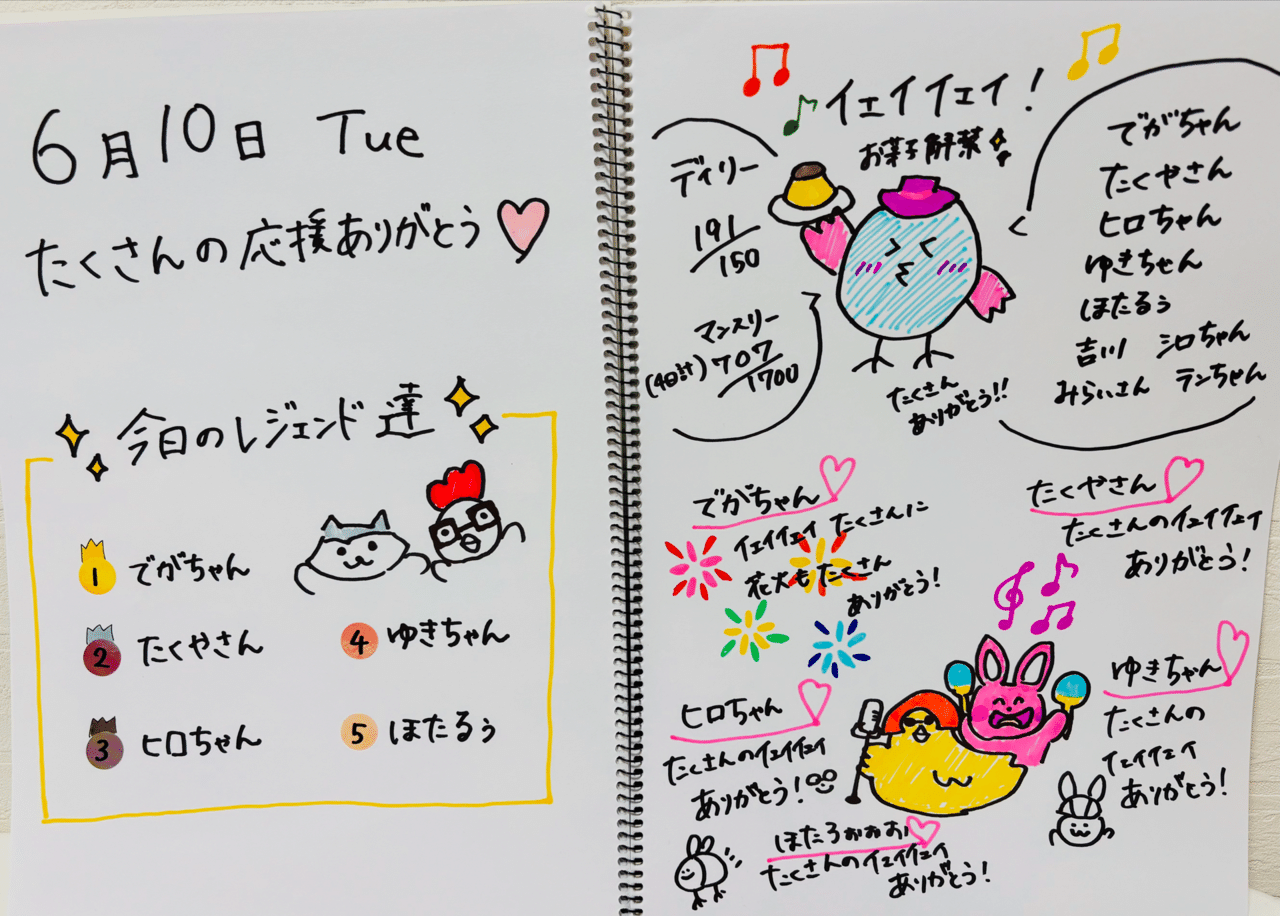 6月10日 Tue
たくさんの応援ありがとう
今日のレジェンド達
1 でがちゃん
2 たくやさん
3 ヒロちゃん
4 ゆきちゃん
5 ほたるぅ
イェイイェイ！
お菓子解禁
デイリー
191/150
マンスリー
(4日計) 707/1700
たくさん
ありがとう!!
でがちゃん
たくやさん
ヒロちゃん
ゆきちゃん
ほたるぅ
吉川 シロちゃん
みらいさん テンちゃん
でがちゃん
イェイイェイ たくさんに
花火もたくさん
ありがとう！
たくやさん
たくさんのイェイイェイ
ありがとう！
ヒロちゃん
たくさんのイェイイェイ
ありがとう！
ゆきちゃん
たくさんの
イェイイェイ
ありがとう！
ほたろぉぉぉ
たくさんのイェイイェイ
ありがとう！